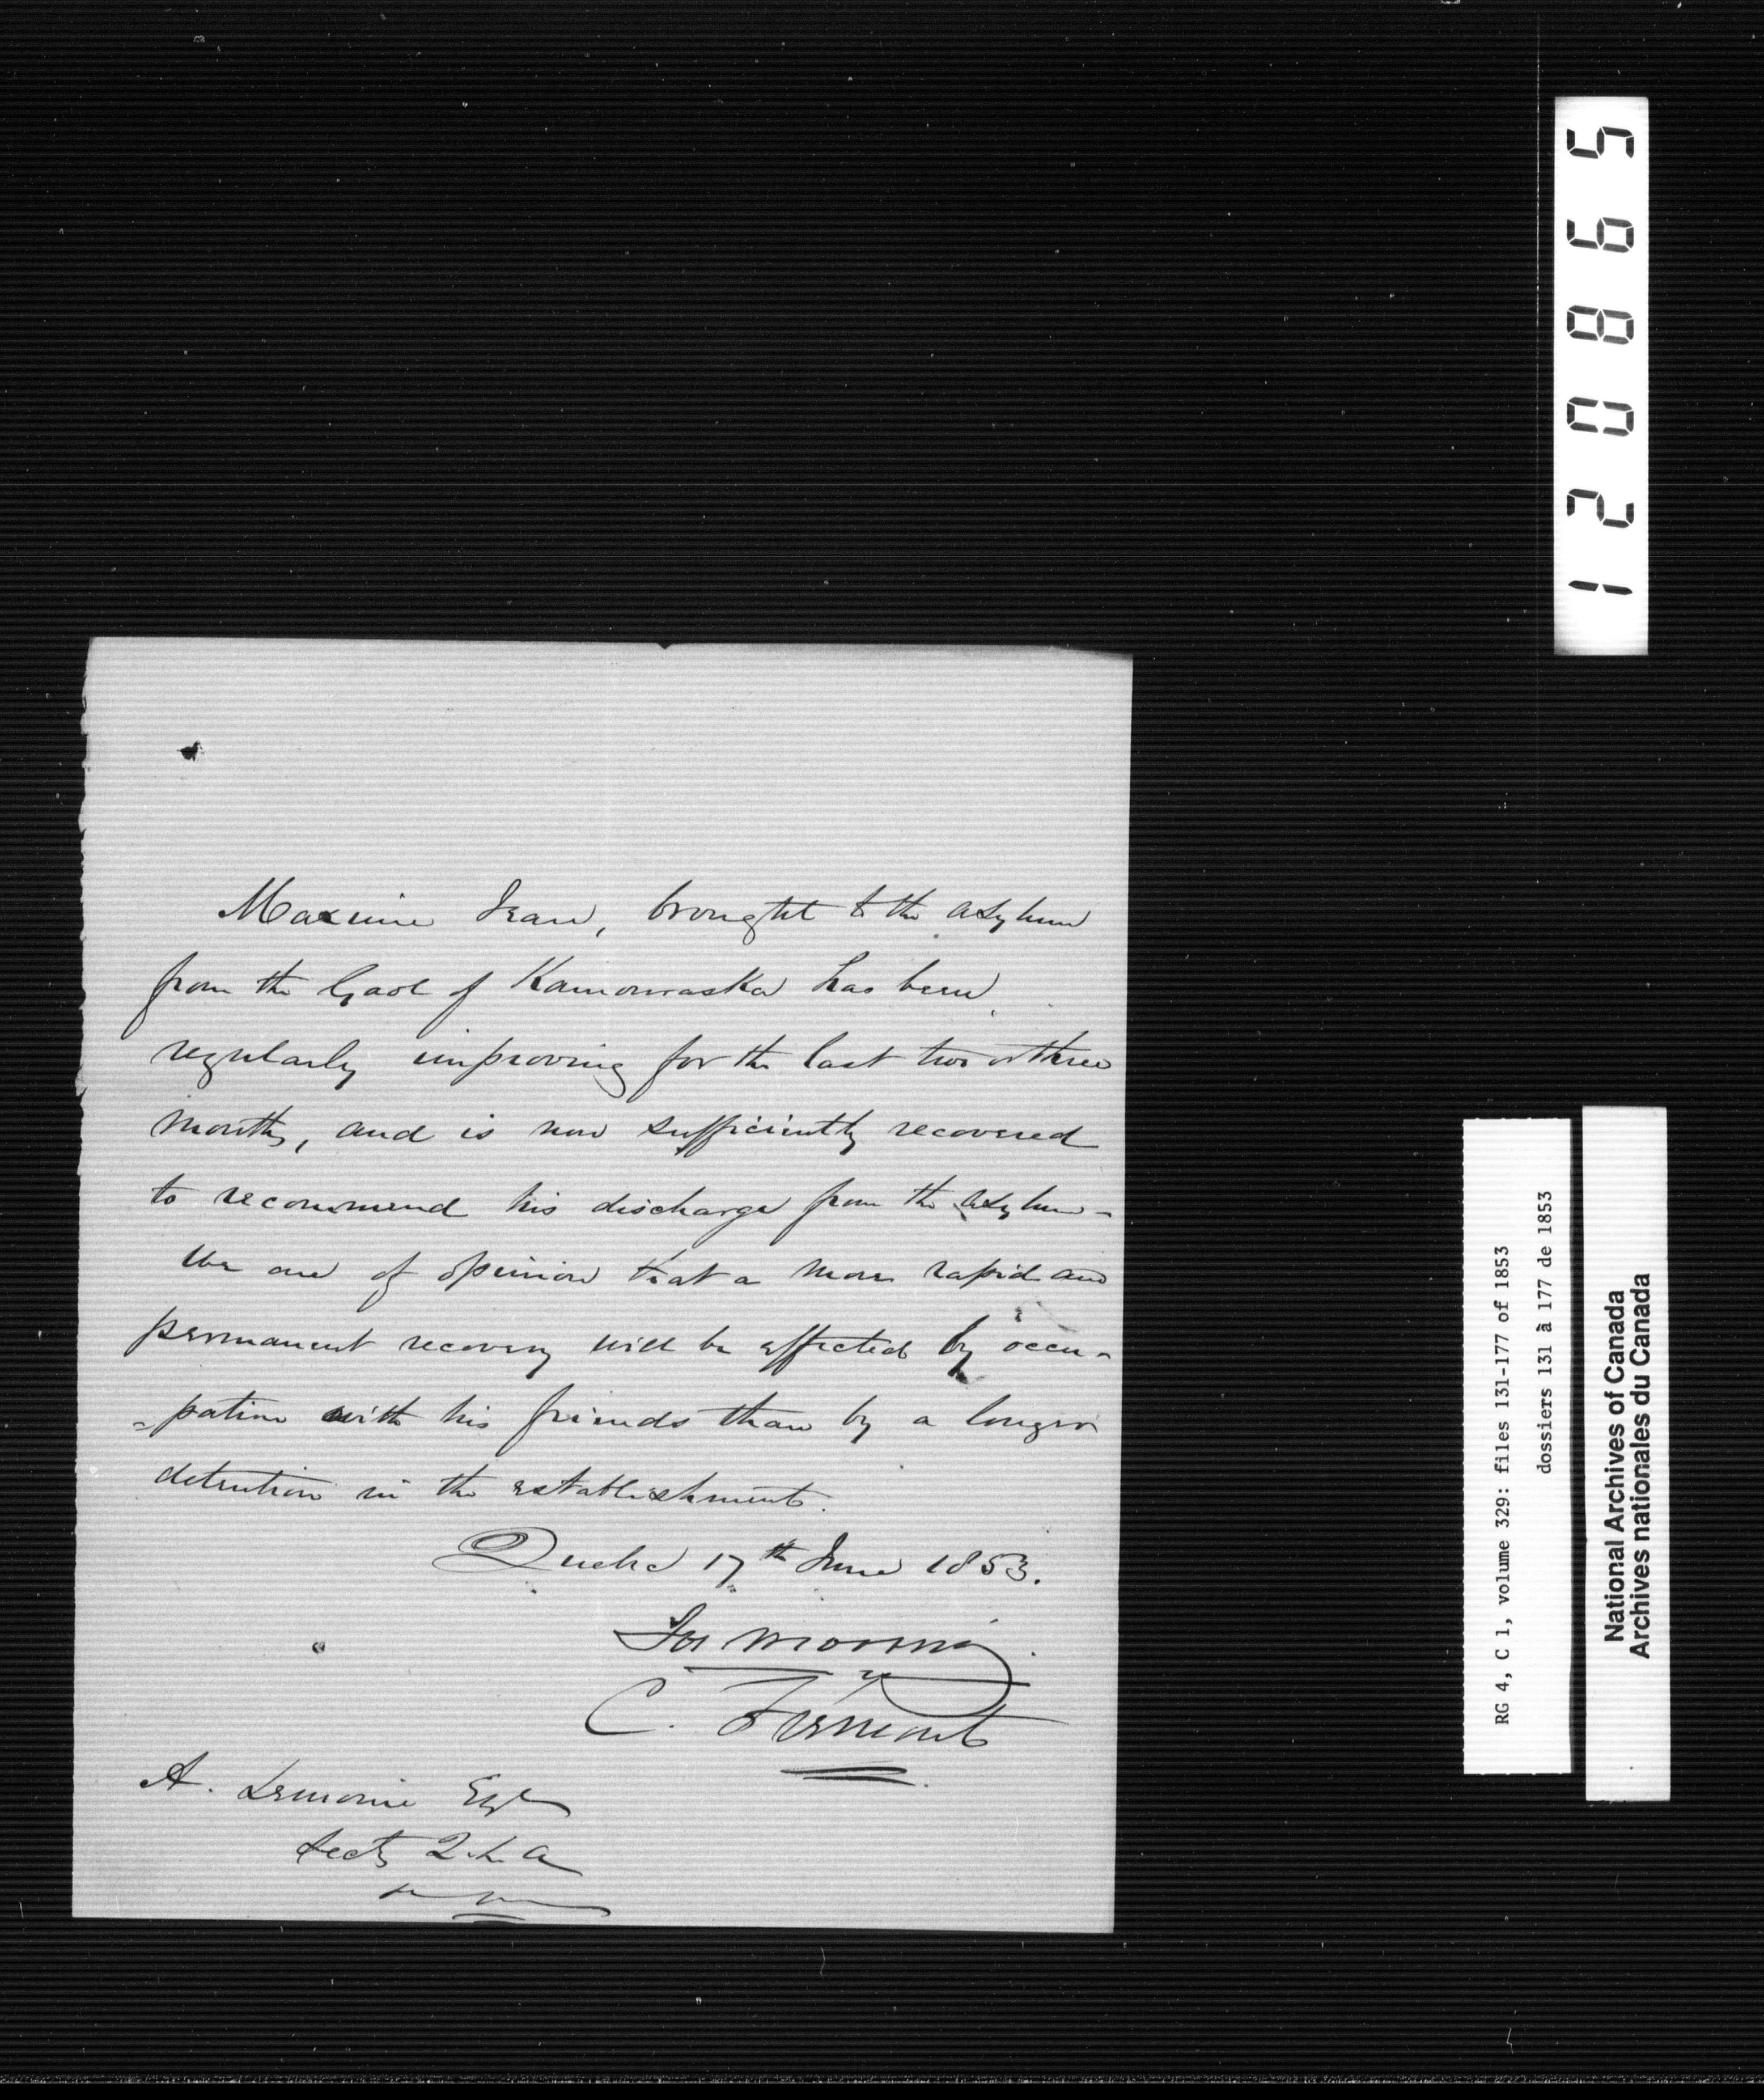 Maxime Jean, brought to the asylum
from the Gaol of Kamouraska has been
regularly improving for the last two or three
months, and is now sufficiently recovered
to recommend his discharge from the asylum -
We are of opinion that a more rapid and
permanent recovery will be effected by occu-
=pation with his friends than by a longer
detention in the establishment.
Quebec 17th June 1853.
Jos Morrin
C. Fremont
A. Lemoine Esqr
Secty Q. L. A
120865
RG 4, C 1, volume 329: files 131-177 of 1853
dossiers 131 à 177 de 1853
National Archives of Canada
Archives nationales du Canada